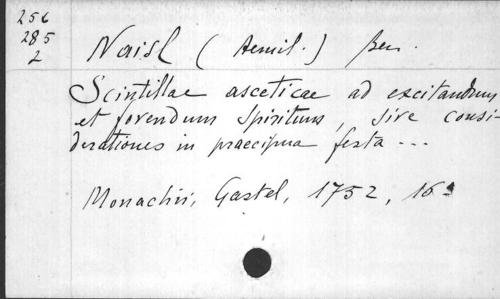 256
285
2
Naisl (Aemil.) Ben.
Scintillae asceticae ad excitandum
et fovendum Spiritum, sive consi-
derationes in praecipua festa ...
Monachii, Gastel, 1752, 16°